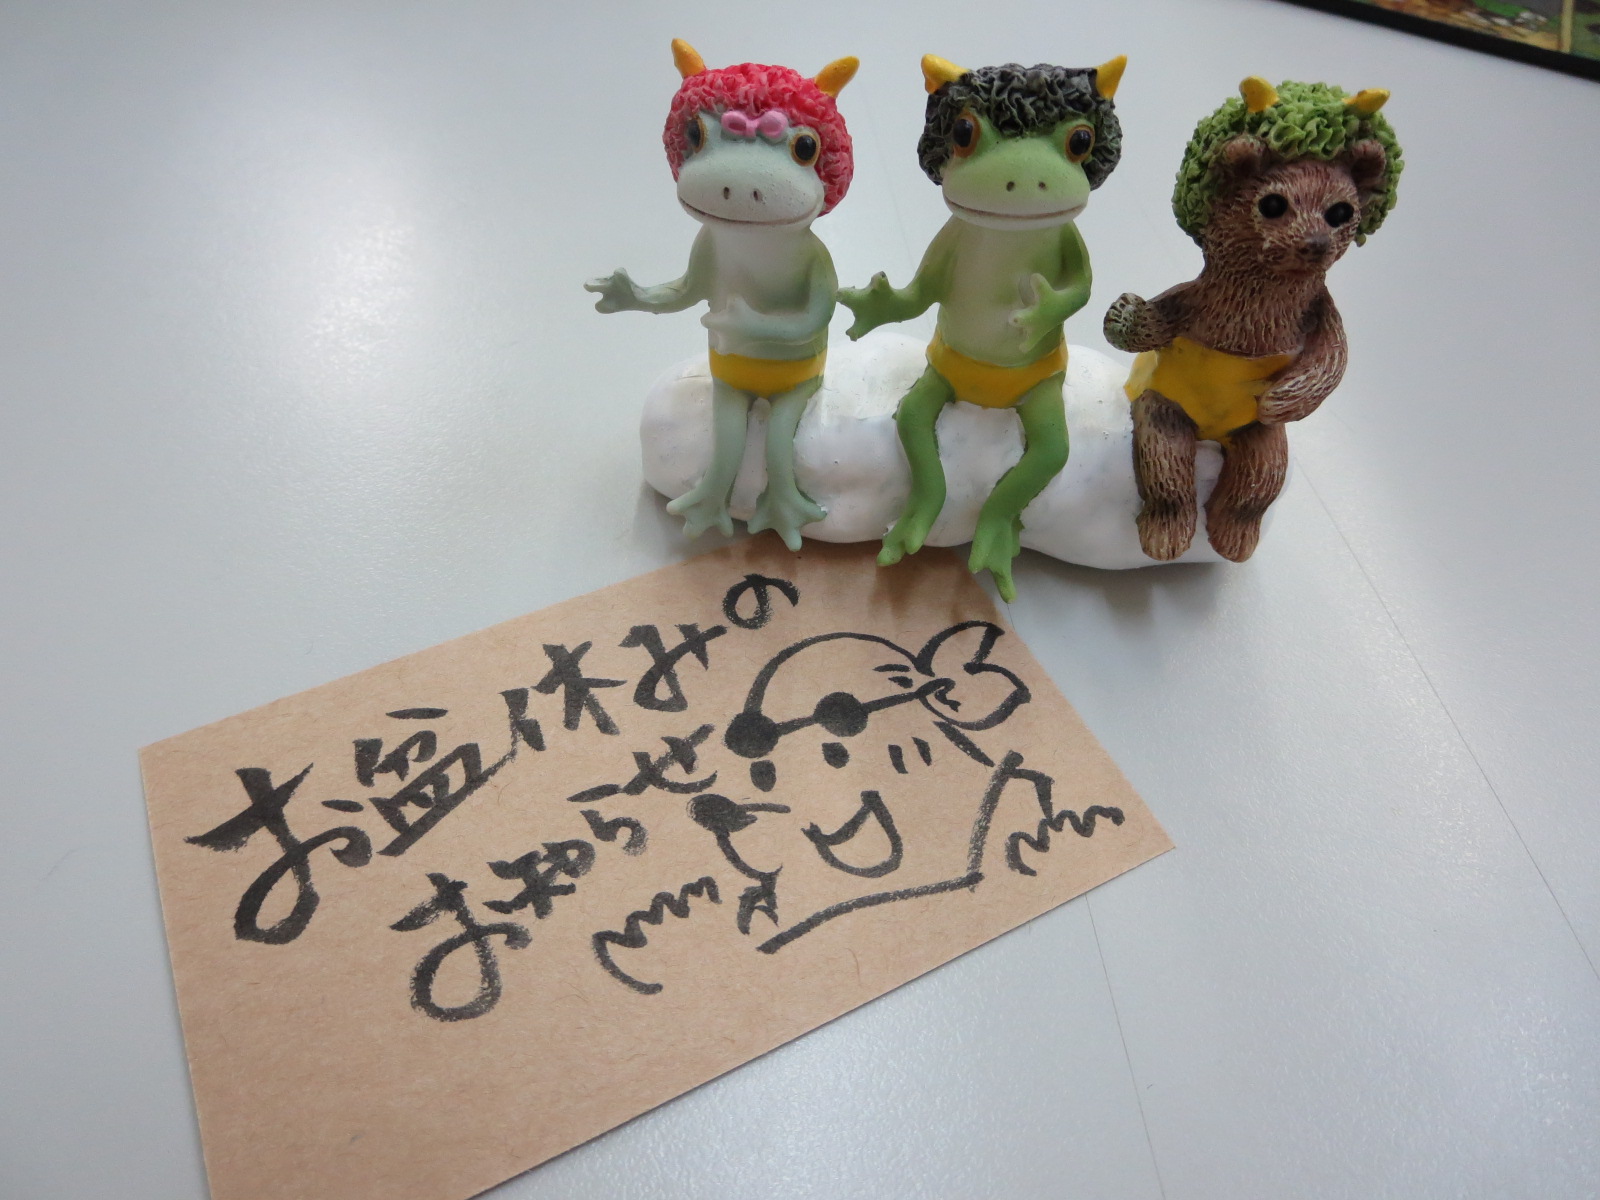 お盆休みの
お知らせ